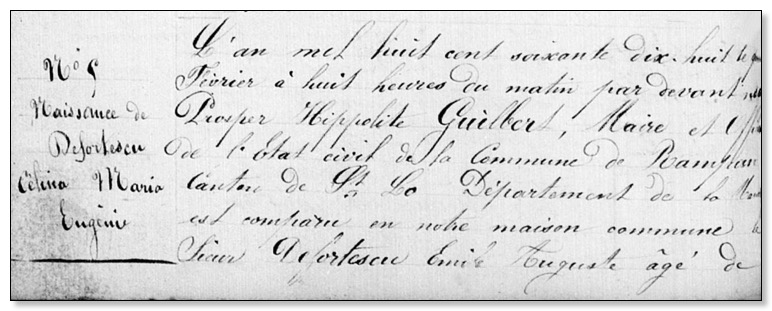 No 5
Naissance de
Defortescu
Célina Maria
Eugénie
L'an mil huit cent soixante dix-huit le
Février à huit heures du matin par devant
Prosper Hippolite Guilbert, Maire et
de l'Etat civil de la Commune de
Canton de St Lo Département de la
est comparu en notre maison commune le
Sieur Defortescu Emile Auguste âgé de